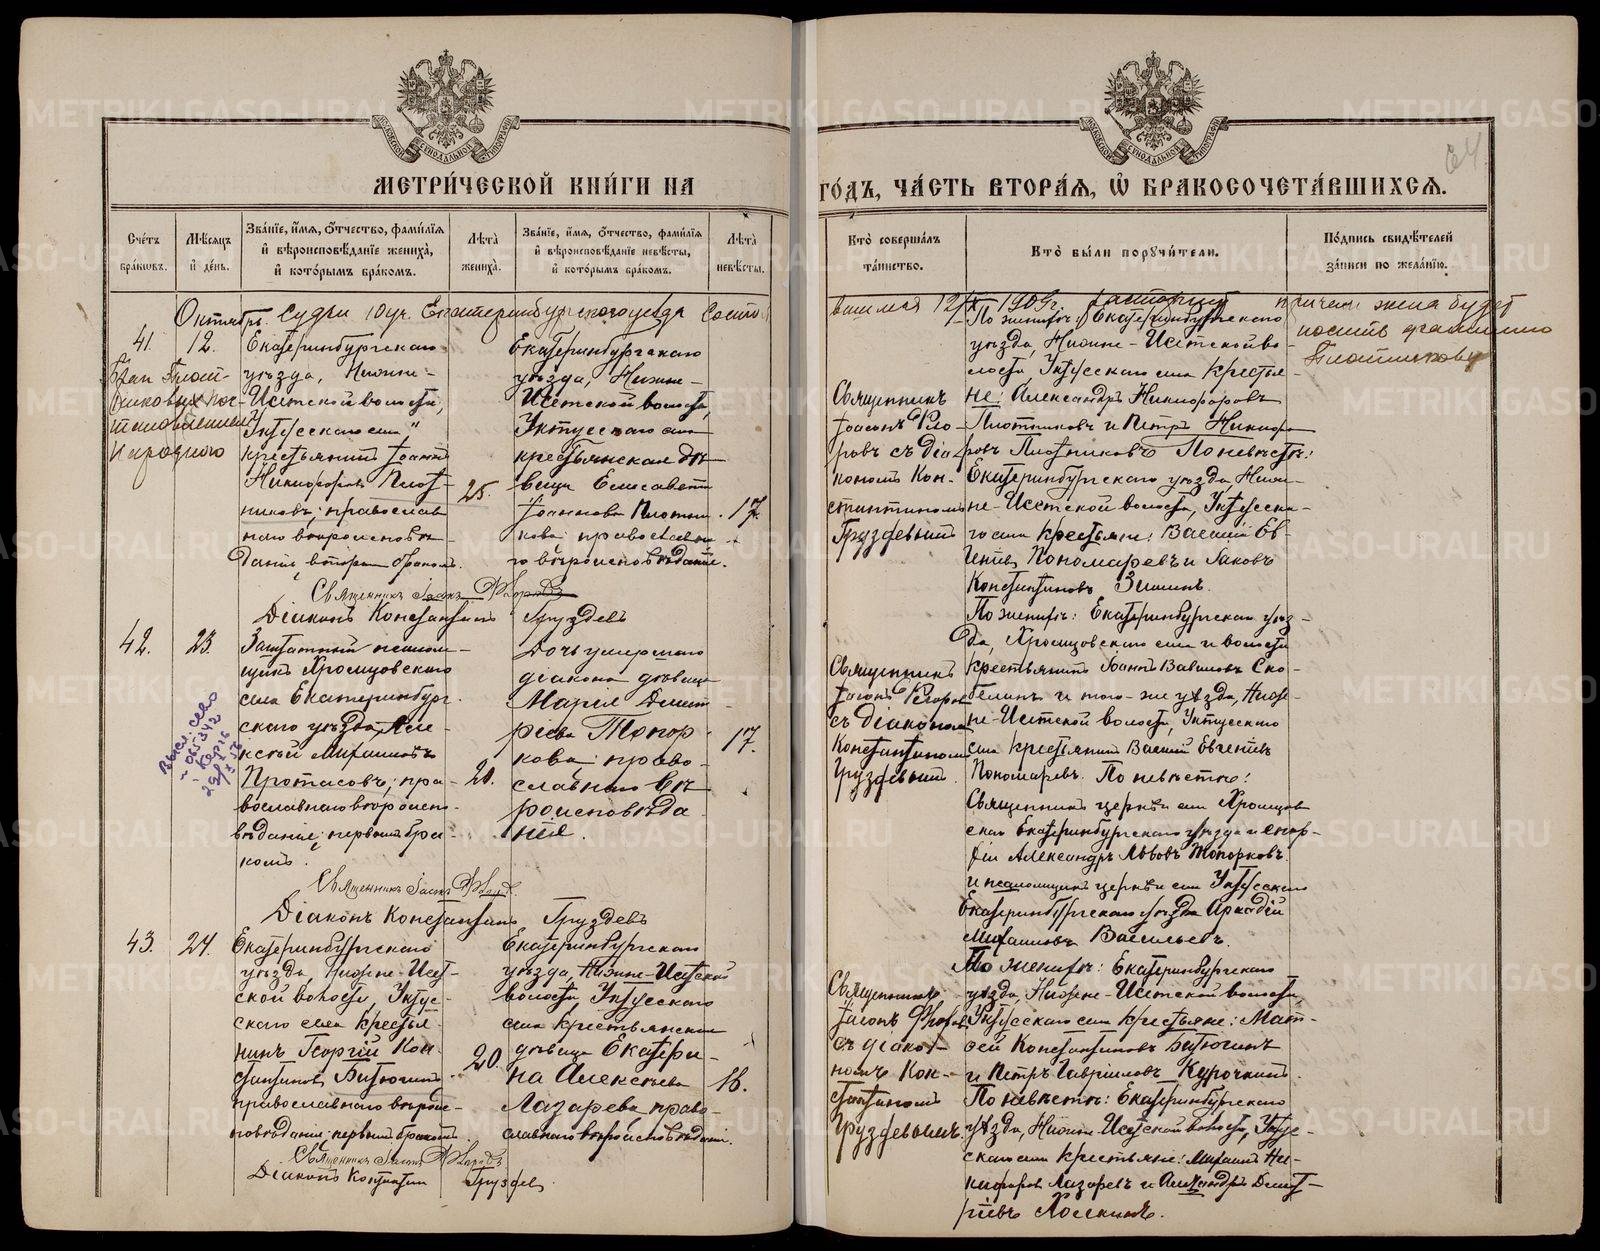 МЕТРИ́ЧЕСКОЙ КНИ́ГИ НА
Сче́тъ бра́ковъ.
Мѣ́сяцъ и҆ де́нь.
Зва́нїе, и҆́мѧ, ѻ҆́тчество, фами́лїѧ и҆ вѣроисповѣ́данїе жениха̀, и҆ кото́рымъ бра́комъ.
Лѣ́та жениха̀.
Зва́нїе, и҆́мѧ, ѻ҆́тчество, фами́лїѧ и҆ вѣроисповѣ́данїе невѣ́сты, и҆ кото́рымъ бра́комъ.
Лѣ́та невѣ́сты.
Октябрь. Судьи 10 уч. Екатеринбургского уезда
41.
12.
Брак
Народного
Екатеринбургскаго
уѣзда, Нижне-
Исетской волости,
Уктусскаго села
крестьянинъ Іоаннъ
Никифоровъ Плот-
никовъ, православ
наго вѣроисповѣ-
данія, вторым бракомъ.
25.
Екатеринбургскаго
уѣзда, Нижне-
Исетской волости,
Уктусскаго села
крестьянская дѣ-
вица Елисавета
Іоаннова Плотни
кова православна
го вѣроисповѣданія.
17.
Священникъ Іасонъ Флоровъ
Діаконъ Константинъ Груздевъ
42.
23.
Заштатный псаломщ-
щикъ Хромцовскаго
села Екатеринбург-
скаго уѣзда, Але-
ксѣй Михаиловъ
Протасовъ, пра-
вославнаго вѣроиспо-
вѣданія, первымъ бра-
комъ.
20.
Дочь умершаго
діакона дѣвица
Марія Димит
ріева Топор
кова, право-
славнаго вѣ
роисповѣда
нія.
17.
Священникъ Іасонъ Флоров.
Діаконъ Константинъ Груздевъ
43.
24.
Екатеринбургскаго
уѣзда, Нижне-Исет-
ской волости, Уктус-
скаго села крестья-
нинъ Георгій Кон-
стантиновъ Битюгинъ
православнаго вѣроис-
повѣданія, первымъ бракомъ
20.
Екатеринбургскаго
уѣзда, Нижне-Исетской
волости, Уктусскаго
села крестьянская
дѣвица Екатери-
на Алексѣева
Лазарева, право-
славнаго вѣроисповѣданія.
16.
Священникъ Іасонъ Флоровъ
Діаконъ Константин Груздев
ГО́ДЪ, ЧА́СТЬ ВТОРА́Ѧ, Ѽ БРАКОСОЧЕТА́ВШИХСѦ.
64.
Кто̀ соверша́лъ та́инство.
Кто̀ бы́ли пору́чители.
По́дпись свидѣ́телей за́писи по жела́нїю.
причем жена будет
носить фамилию
Плотникову
Священникъ
Іасонъ Фло-
ровъ съ діа-
кономъ Кон-
стантиномъ
Груздевымъ
По женихѣ: Екатеринбургскаго
уѣзда, Нижне-Исетской во-
лости, Уктусскаго села крестья-
не: Александръ Никифоровъ
Плотниковъ и Петръ Никифо
ровъ Плотниковъ. По невѣстѣ:
Екатеринбургскаго уѣзда Ниж-
не-Исетской волости, Уктусска-
го села крестьяне: Василій Ев-
геніевъ Пономаревъ и Іаковъ
Константиновъ Зиминъ.
Священникъ
Іасонъ Флоров
съ діакономъ
Константиномъ
Груздевымъ.
По женихѣ: Екатеринбургскаго уѣз-
да, Хромцовскаго села и волости
крестьянинъ Іоаннъ Вавиловъ Ско-
белинъ и того-же уѣзда, Ниж-
не-Исетской волости, Уктусскаго
села крестьянинъ Василій Евгеніев
Пономаревъ. По невѣстѣ:
Священникъ церкви села Хромцов
скаго Екатеринбургскаго уѣзда
Александръ Львовъ Топорковъ
и псаломщикъ церкви села Уктусскаго
Екатеринбургскаго уѣзда Аркадій
Михаиловъ Васильевъ.
Священникъ
Іасонъ Флоров
съ діако-
номъ Кон-
стантиномъ
Груздевымъ.
По женихѣ: Екатеринбургскаго
уѣзда, Нижне-Исетской волости,
Уктусскаго села крестьяне: Мат-
ѳей Константиновъ Битюгинъ
и Петръ Гавріиловъ Курочкинъ.
По невѣстѣ: Екатеринбургскаго
уѣзда, Нижне-Исетской волости, Уктус-
скаго села крестьяне: Михаилъ Ни-
кифоровъ Лазаревъ и Александръ Димит-
ріевъ
METRIKI.GASO-URAL.RU